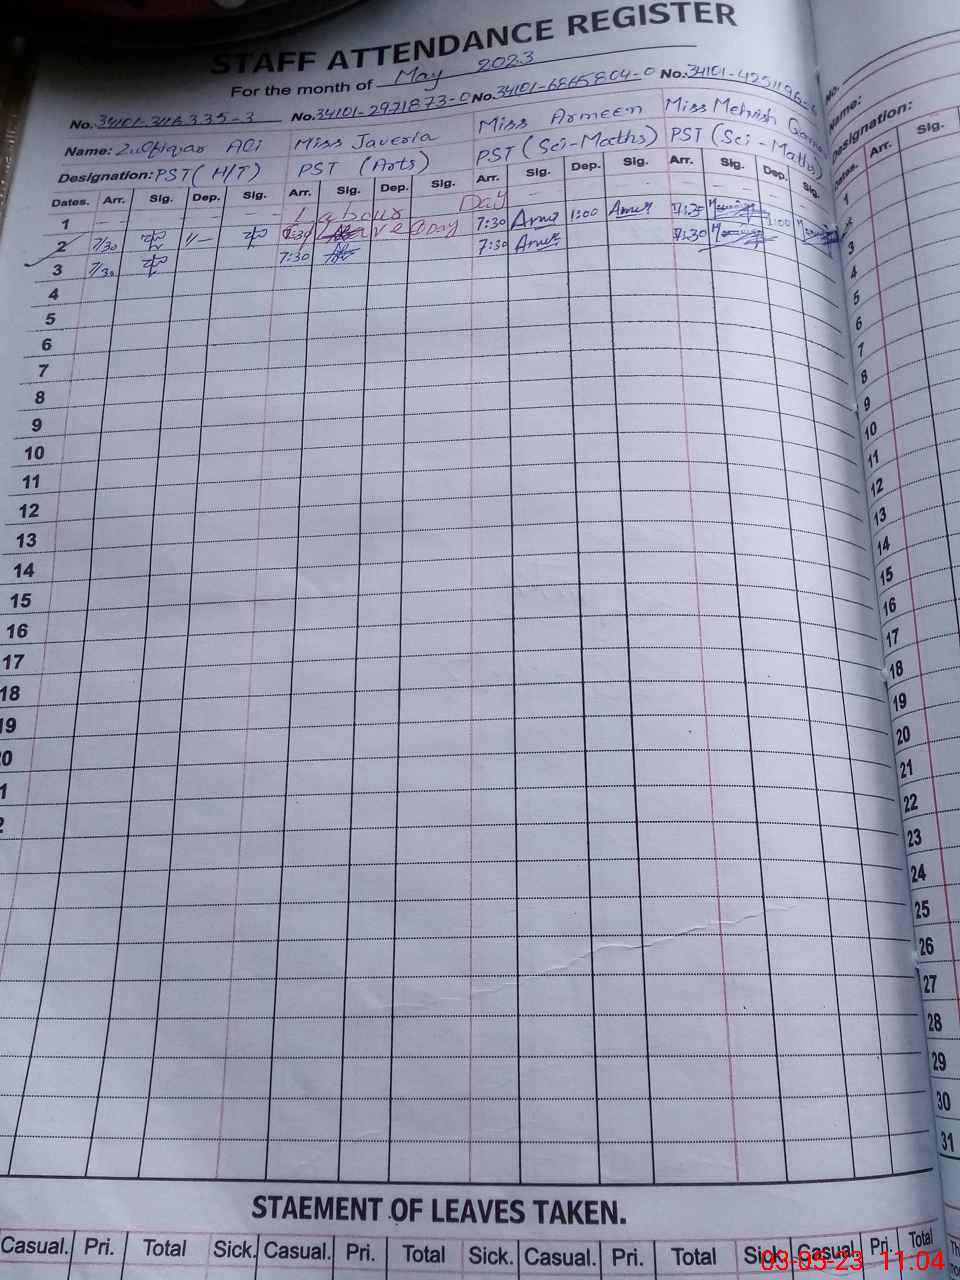 STAFF ATTENDANCE REGISTER
For the month of May 2023
No. 34101-3116335-3 No. 34101-2921873-0 No. 34101-6865804-0 No. 34101-4251196- No.
Name: Zulfiqar Ali Miss Javeria Miss Armeen Miss Mehrish Name:
Designation: PST (H/T) PST (Arts) PST (Sci-Maths) PST (Sci-Maths) Designation:
Dates. Arr. Sig. Dep. Sig. Arr. Sig. Dep. Sig. Arr. Sig. Dep. Sig. Arr. Sig. Dep. Sig. Dates. Arr. Sig.
1 Labour Day 1
2 7/30 Leave Day 7:30 1:00 7:25 1:00
3 7/30 7:30 7:30 7:30 3
4 4
5 5
6 6
7 7
8 8
9 9
10 10
11 11
12 12
13 13
14 14
15 15
16 16
17 17
18 18
19 19
20
21
22
23
24
25
26
27
28
29
30
31
STAEMENT OF LEAVES TAKEN.
Casual. Pri. Total Sick. Casual. Pri. Total Sick. Casual. Pri. Total Sick. Casual. Pri. Total
03-05-23 11:04